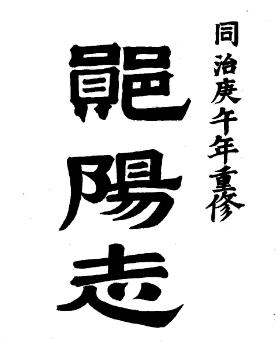 同治庚午年重修
鄖陽志